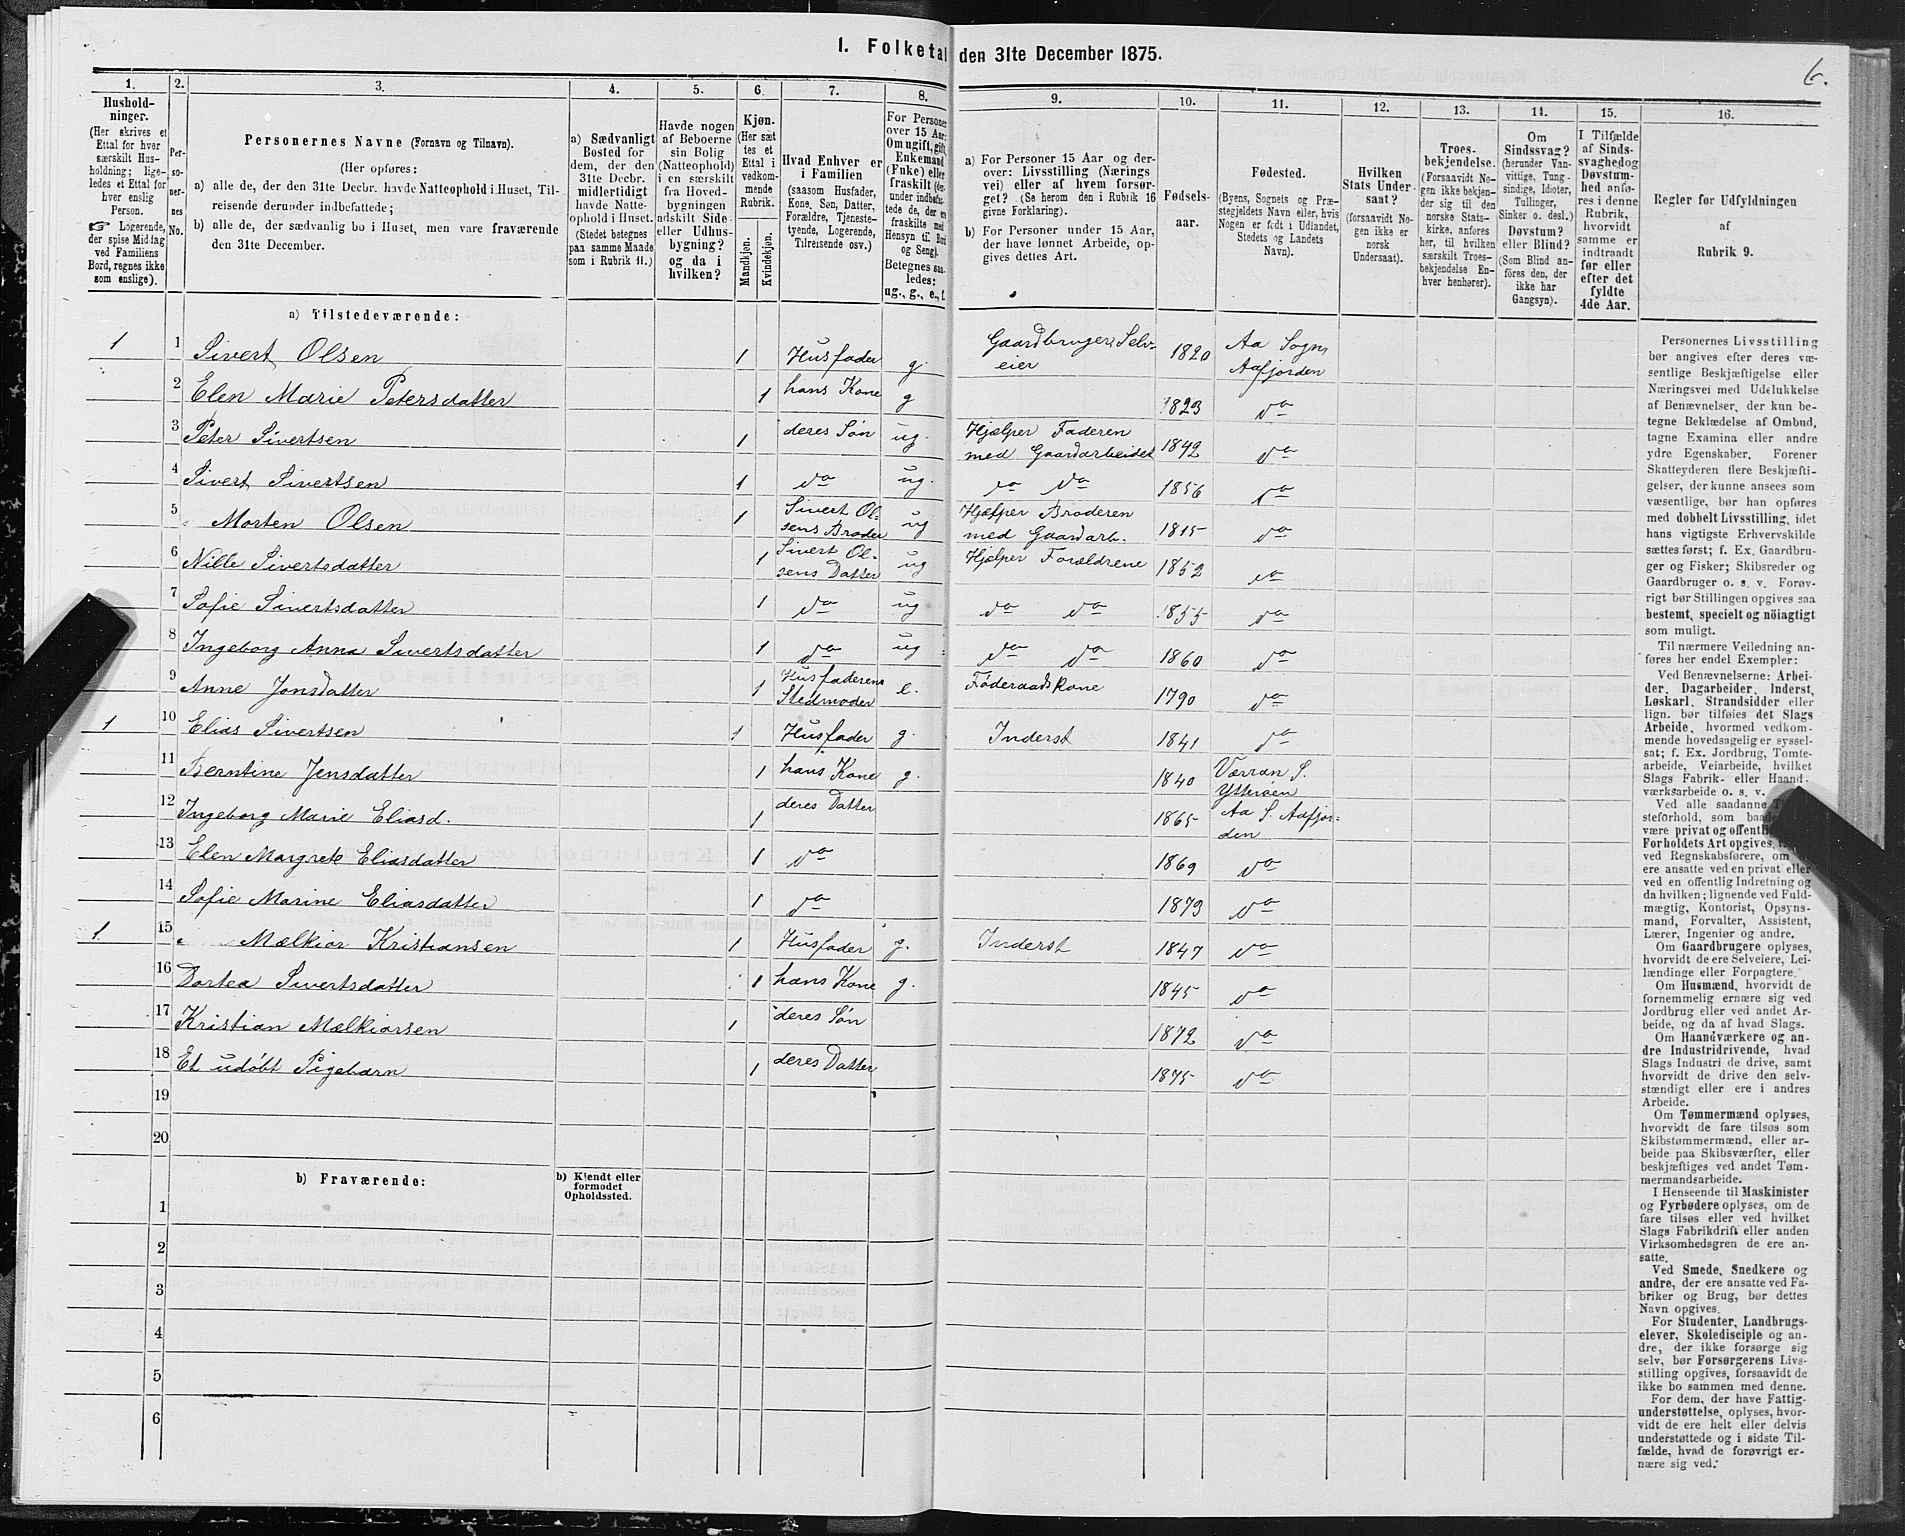 I. Folketal den 31te December 1875.
6.
1.
Hushold-
ninger.
(Her skrives et
Ettal for hver
særskilt Hus-
holdning; lige-
ledes et Ettal for
hver enslig
Person.
☞ Logerende,
der spise Middag
ved Familiens
Bord, regnes ikke
som enslige).
2.
Per-
so-
ner-
nes
No.
3.
Personernes Navne (Fornavn og Tilnavn).
(Her opføres:
a) alle de, der den 31te Decbr. havde Natteophold i Huset, Til-
reisende derunder indbefattede;
b) alle de, der sædvanlig bo i Huset, men vare fraværende
den 31te December.
4.
a) Sædvanligt
Bosted for
dem, der den
31te Decbr.
midlertidigt
havde Natte-
ophold i Huset.
(Stedet betegnes
paa samme Maade
som i Rubrik 11.)
5.
Havde nogen
af Beboerne
sin Bolig
(Natteophold)
i en særskilt
fra Hoved-
bygningen
adskilt Side-
eller Udhus-
bygning?
og da i
hvilken?
6.
Kjøn.
(Her sæt
tes et
Ettal i
vedkom-
mende
Rubrik.
Mandkjøn.
Kvindekjøn.
7.
Hvad Enhver er
i Familien
(saasom Husfader,
Kone, Søn, Datter,
Forældre, Tjeneste-
tyende, Logerende,
Tilreisende osv.)
8.
For Personer
over 15 Aar:
Om ugift, gift,
Enkemand
(Enke) eller
fraskilt (der-
under indbefat-
tede de, der er
fraskilte med
Hensyn til Bord
og Seng).
Betegnes saa-
ledes:
ug., g., e., f.
9.
a) For Personer 15 Aar og der-
over: Livsstilling (Nærings
vei) eller af hvem forsør-
get? (Se herom den i Rubrik 16
givne Forklaring).
b) For Personer under 15 Aar,
der have lønnet Arbeide, op-
gives dettes Art.
10.
Fødsels-
aar.
11.
Fødested.
(Byens, Sognets og Præ-
stegjeldets Navn eller, hvis
Nogen er født i Udlandet,
Stedets og Landets
Navn).
12.
Hvilken
Stats Under-
saat?
(forsaavidt No-
gen ikke er
norsk
Undersaat).
13.
Troes-
bekjendelse.
(Forsaavidt No-
gen ikke bekjen-
der sig til den
norske Stats-
kirke, anføres
her, til hvilken
særskilt Troes-
bekjendelse En-
hver henhører).
14.
Om
Sindssvag?
(herunder Van-
vittige, Tung-
sindige, Idioter,
Tullinger,
Sinker o. desl.)
Døvstum?
eller Blind?
(Som Blind an-
føres den, der
ikke har
Gangsyn).
15.
I Tilfælde
af Sinds-
svaghed og
Døvstum-
hed anfø-
res i denne
Rubrik,
hvorvidt
samme er
indtraadt
før eller
efter det
fyldte
4de Aar.
16.
Regler for Udfyldningen
af
Rubrik 9.
a) Tilstedeværende:
1 1 Sivert Olsen 1 Husfader g. Gaardbruger Selv-
eier 1820 Aa Sogn,
Aafjorden
2 Elen Marie Petersdatter 1 hans Kone g 1823 do
3 Peter Sivertsen 1 deres Søn ug. Hjælper Faderen
med Gaardarbeidet 1842 do
4 Sivert Sivertsen 1 do ug. do do 1856 do
5 Morten Olsen 1 Sivert Ol-
sens Broder ug Hjælper Broderen
med Gaardarb. 1815 do
6 Nille Sivertsdatter 1 Sivert Ol-
sens Datter ug Hjelper Forældrene 1852 do
7 Sofie Sivertsdatter 1 do ug do do 1855 do
8 Ingeborg Anna Sivertsdatter 1 do ug do do 1860 do
9 Anne Jonsdatter 1 Husfaderens
Stedmoder e. Føderaadskone 1790 do
1 10 Elias Sivertsen 1 Husfader g. Inderst 1841 do
11 Berntine Jensdatter 1 hans Kone g. 1840 Værran S.
Ytterøen
12 Ingeborg Marie Eliasd. 1 deres Datter 1865 Aa S. Aafjor-
den
13 Elen Margrete Eliasdatter 1 do 1869 do
14 Sofie Marine Eliasdatter 1 do 1873 do
1 15 Mælkior Kristiansen 1 Husfader g. Inderst 1847 do
16 Dortea Sivertsdatter 1 hans Kone g. 1845 do
17 Kristian Mælkiorsen 1 deres Søn 1872 do
18 Et udøbt Pigebarn 1 deres Datter 1875 do
19
20
b) Fraværende:
b) Kjendt eller
formodet
Opholdssted.
1
2
3
4
5
6
Personernes Livsstilling
bør angives efter deres væ-
sentlige Beskjæftigelse eller
Næringsvei med Udelukkelse
af Benævnelser, der kun be-
tegne Beklædelse af Ombud,
tagne Examina eller andre
ydre Egenskaber. Forener
Skatteyderen flere Beskjæfti-
gelser, der kunne ansees som
væsentlige, bør han opføres
med dobbelt Livsstilling, idet
hans vigtigste Erhvervskilde
sættes først; f. Ex. Gaardbru-
ger og Fisker; Skibsreder og
Gaardbruger o. s. v. Forøv-
rigt bør Stillingen opgives saa
bestemt, specielt og nöiagtigt
som muligt.
Til nærmere Veiledning an-
føres her endel Exempler:
Ved Benævnelserne: Arbei-
der, Dagarbeider, Inderst,
Løskarl, Strandsidder eller
lign. bør tilføies det Slags
Arbeide, hvormed vedkom-
mende hovedsagelig er syssel-
sat; f. Ex. Jordbrug, Tomte-
arbeide, Veiarbeide, hvilket
Slags Fabrik- eller Haand-
værksarbeide o. s. v.
Ved alle saadanne
steforhold, som baade
være privat og offentlig
Forholdets Art opgives,
ved Regnskabsførere, om
ere ansatte ved en privat eller
ved en offentlig Indretning og
da hvilken; lignende ved Fuld-
mægtig, Kontorist, Opsyns-
mand, Forvalter, Assistent,
Lærer, Ingeniør og andre.
Om Gaardbrugere oplyses,
hvorvidt de ere Selveiere, Lei-
lændinge eller Forpagtere.
Om Husmænd, hvorvidt de
fornemmelig ernære sig ved
Jordbrug eller ved andet Ar-
beide, og da af hvad Slags.
Om Haandværkere og an-
dre Industridrivende, hvad
Slags Industri de drive, samt
hvorvidt de drive den selv-
stændigt eller ere i andres
Arbeide.
Om Tømmermænd oplyses,
hvorvidt de fare tilsøs som
Skibstømmermænd, eller ar-
beide paa Skibsværfter, eller
beskjæftiges ved andet Tøm-
mermandsarbeide.
I Henseende til Maskinister
og Fyrbødere oplyses, om de
fare tilsøs eller ved hvilket
Slags Fabrikdrift eller anden
Virksomhedsgren de ere an-
satte.
Ved Smede, Snedkere og
andre, der ere ansatte ved Fa-
briker og Brug, bør dettes
Navn opgives.
For Studenter, Landbrugs-
elever, Skoledisciple og an-
dre, der ikke forsørge sig
selv, bør Forsørgerens Livs-
stilling opgives, forsaavidt de
ikke bo sammen med denne.
For dem, der have Fattig-
understøttelse, oplyses, hvor-
vidt de ere helt eller delvis
understøttede og i sidste Til-
fælde, hvad de forøvrigt er-
nære sig ved.